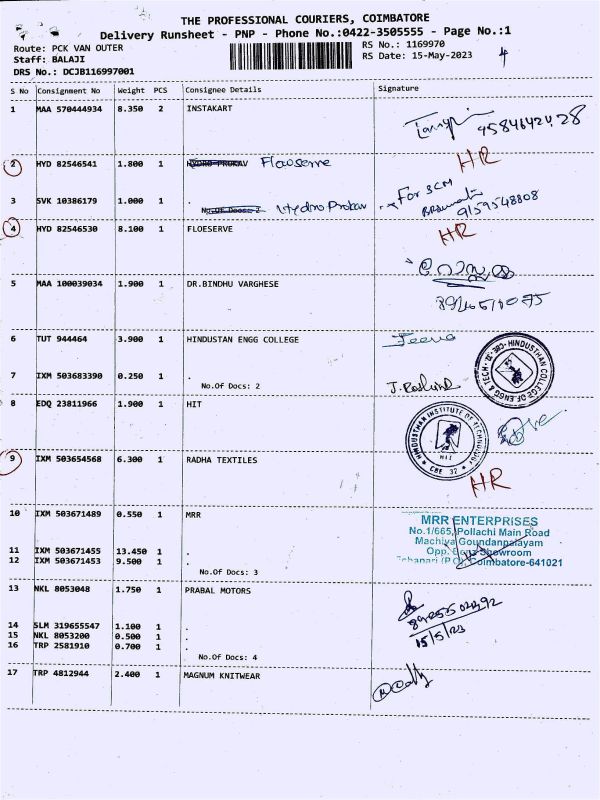 THE PROFESSIONAL COURIERS, COIMBATORE
Delivery Runsheet - PNP - Phone No.:0422-3505555 - Page No.:1
Route: PCK VAN OUTER
RS No.: 1169970
Staff: BALAJI
RS Date: 15-May-2023
DRS No.: DCJB116997001
S No Consignment No Weight PCS Consignee Details Signature
1 MAA 570444934 8.350 2 INSTAKART
HR
2 HYD 82546541 1.800 1 Floeserve
For SCM
3 SVK 10386179 1.000 1 . Hydro Prokav
9159548808
4 HYD 82546530 8.100 1 FLOESERVE
HR
5 MAA 100039034 1.900 1 DR.BINDHU VARGHESE
6 TUT 944464 3.900 1 HINDUSTAN ENGG COLLEGE
Jeeva
7 IXM 503683390 0.250 1 .
No.Of Docs: 2
HINDUSTHAN COLLEGE OF ENGG & TECH CBE-32
8 EDQ 23811966 1.900 1 HIT
HINDUSTHAN INSTITUTE OF TECHNOLOGY
HIT
CBE 32
9 IXM 503654568 6.300 1 RADHA TEXTILES
HR
10 IXM 503671489 0.550 1 MRR
MRR ENTERPRISES
No.1/665, Pollachi Main Road
Machiya Goundanpalayam
11 IXM 503671455 13.450 1 .
Opp. Benz Showroom
12 IXM 503671453 9.500 1 .
Coimbatore-641021
No.Of Docs: 3
13 NKL 8053048 1.750 1 PRABAL MOTORS
14 SLM 319655547 1.100 1 .
15 NKL 8053200 0.500 1 .
15/5/23
16 TRP 2581910 0.700 1 .
No.Of Docs: 4
17 TRP 4812944 2.400 1 MAGNUM KNITWEAR